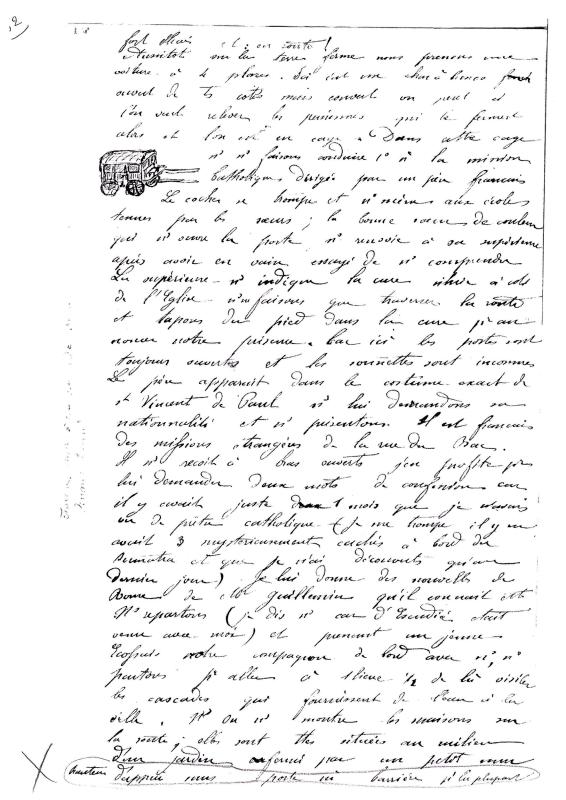 2)
fort
Aussitôt sur la terre ferme nous prenons une
voiture à 4 places. Ici c'est un char à bancs
ouvert de ts côtés mais couvert on peut si
l'on veut relever les persiennes qui le ferment
alors et l'on est en cage. Dans cette cage
ns ns faisons conduire 1º à la mission
Catholique dirigée par un père français
Le cocher se trompe et ns mène aux écoles
tenues par les sœurs ; la bonne sœur de couleur
qui ns ouvre la porte ns renvoie à sa supérieure
après avoir en vain essayé de ns comprendre
La supérieure ns indique la cure située à côté
de l'Eglise ns ne faisons que traverser la route
et tapons du pied dans la cure pr an
noncer notre présence. Car ici les portes sont
toujours ouvertes et les sonnettes sont inconnues
Le père apparaît dans le costume exact de
st Vincent de Paul ns lui demandons sa
nationnalité et ns présentons. Il est français
des missions étrangères de la rue du Bac.
Il ns reçoit à bras ouverts j'en profite pr
lui demander deux mots de confession car
il y avait juste 1 mois que je n'avais
vu de prêtre catholique (je me trompe il y en
avait 3 mystérieusement cachés à bord du
Sumatra et que je n'ai découverts qu'au
dernier jour) Je lui donne des nouvelles de
Rome de Mr Guillemin qu'il connaît etc
Ns repartons (je dis ns car d'Escudié était
venu avec moi) et prenant un jeune
Ecossais notre compagnon de bord avec ns, ns
partons pr aller à 1 lieue 1/2 de là visiter
les cascades qui fournissent de l'eau à la
ville. On ns montre les maisons sur
la route ; elles sont ttes situées au milieu
d'un jardin enfermé par un petit mur
hauteur d'appui sans porte ni barrière pr la plupart